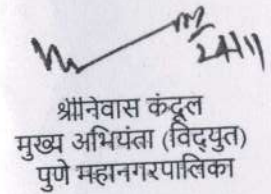 श्रीनिवास कंदूल
मुख्य अभियंता (विद्युत)
पुणे महानगरपालिका